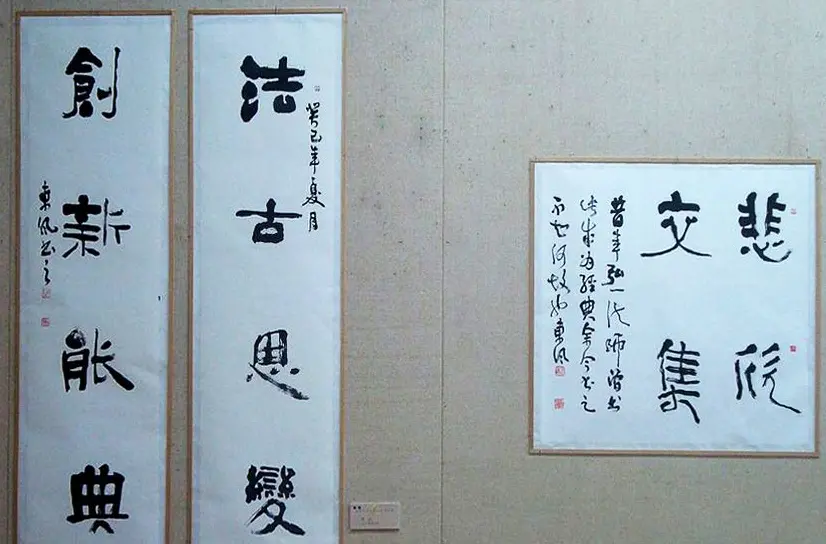 法古思變
癸巳年夏月
創新能典
東風書之
悲欣
交集
昔年弘一法師曾書
此成為經典余今書之
不知何故東風